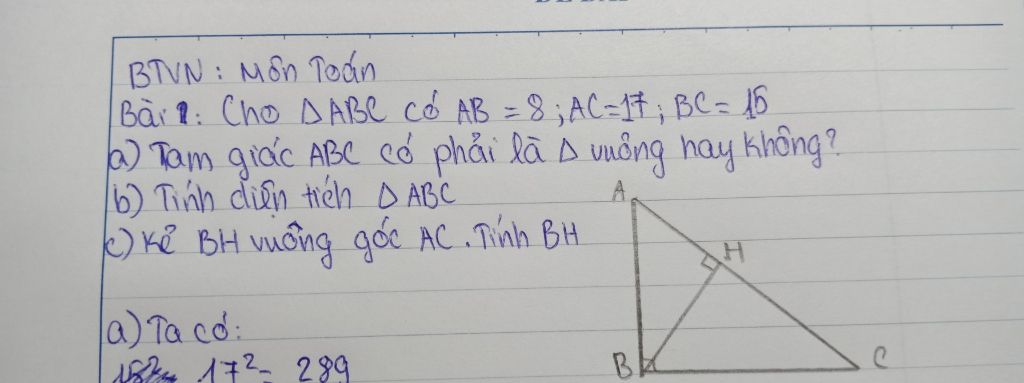 BTVN: Môn Toán
Bài 1: Cho Δ ABC có AB = 8; AC=17; BC= 15
a) Tam giác ABC có phải là Δ vuông hay không?
b) Tính diện tích Δ ABC
c) Kẻ BH vuông góc AC. Tính BH
A
H
B
C
a) Ta có:
17² = 289